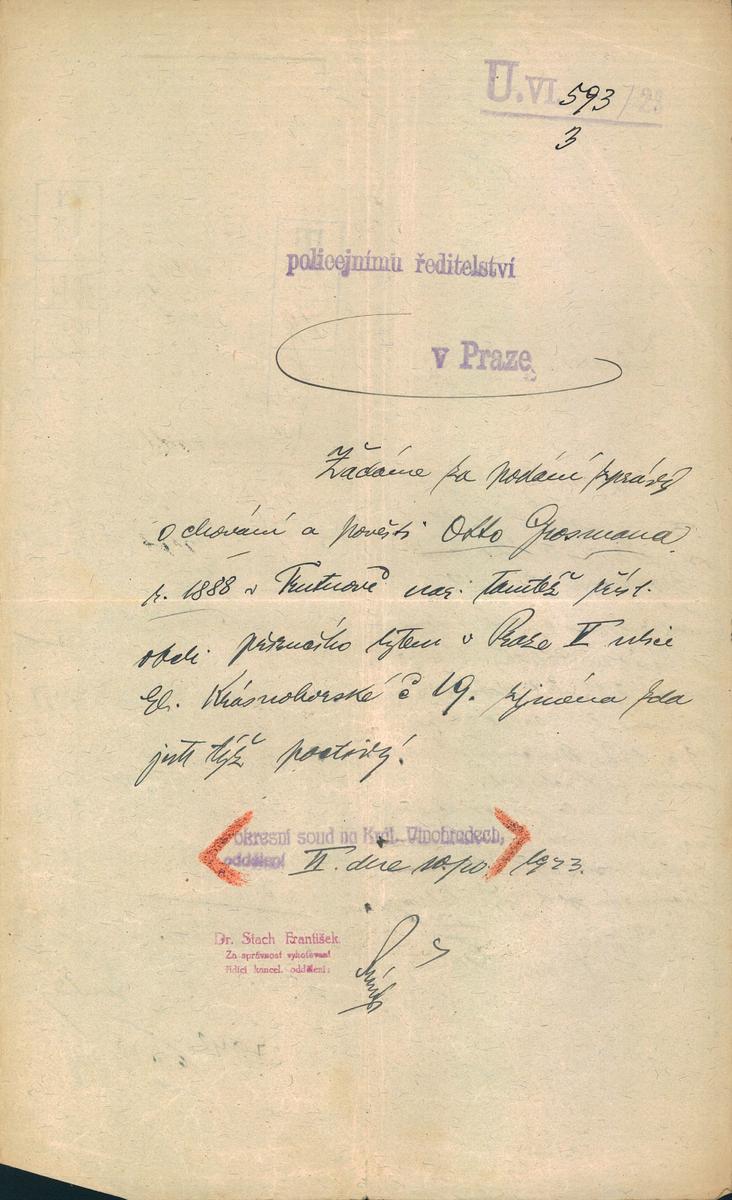 U.VI. 593/23
3
policejnímu ředitelství
v Praze
Žádáme za podání zprávy
o chování a pověsti Otto Grosmana
r. 1888 v Trutnově nar. tamtéž přísl.
obch. příručího bytem v Praze V ulice
El. Krásnohorské č 19. zejména zda
jest týž poctivý.
okresní soud na Král. Vinohradech,
oddělení VI. dne 1923.
Dr. Stach František.
Za správnost vyhotovení
řídící kancel. oddělení: